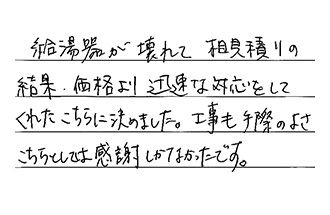 給湯器が壊れて 相見積りの
結果、価格より迅速な対応をして
くれたこちらに決めました。工事も手際のよさ
こちらとしては感謝しかなかったです。